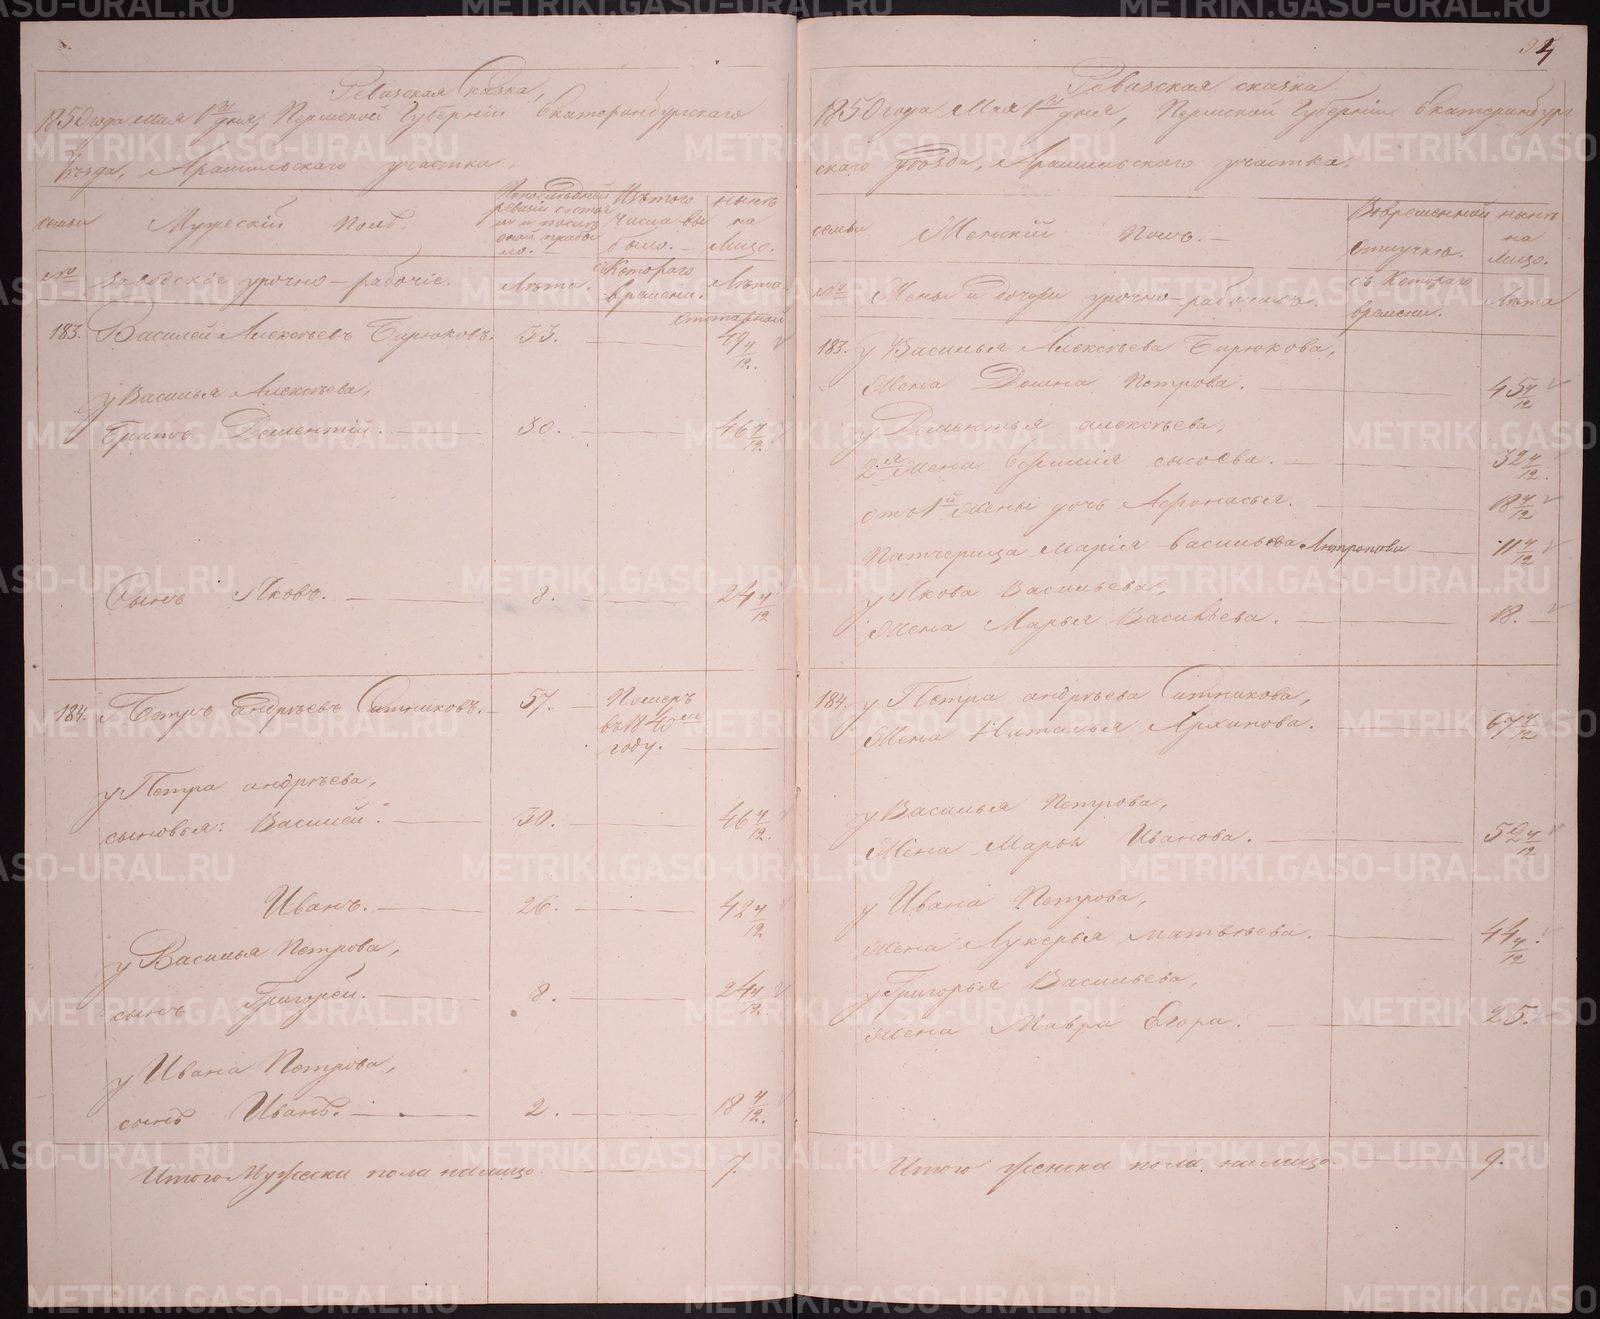 Ревизская сказка,
1850 года Мая 1го дня, Пермской Губерніи Екатеринбургскаго
Уезда, Арамильскаго участка.
семьи
Мужескій полъ.
По последней ревизіи состояло и после оной прибыло.
Изъ того числа выбыло.
ныне на Лицо.
№
Заводскіе урочно-рабочіе.
Лета.
Съ Котораго времени.
Лета.
отставной
183. Василей Алексѣевъ Бирюковъ. 33. 49 4/12.
у Василья Алексѣева,
братъ Дементій. 30. 46 4/12.
Сынъ Яковъ. 8. 24 4/12
184. Петръ андрѣевъ Ситниковъ. 57. Померъ
въ 1840мъ
году.
у Петра андрѣева,
сыновья: Василей. 30. 46 4/12.
Иванъ. 26. 42 4/12
у Василья Петрова,
сынъ Григорей. 8. 24 4/12.
у Ивана Петрова,
сынъ Иванъ. 2. 18 4/12.
Итого Мужеска пола налицо. 7.
24
Ревизская сказка
1850 года Мая 1го дня, Пермской Губерніи Екатеринбург
скаго уѣзда, Арамильскаго участка.
семьи
Женскій полъ.
Во временной отлучке.
ныне на лицо.
№
Жены и дочери урочно-рабочихъ.
съ Котораго времени.
Лета
183. у Василья Алексѣева Бирюкова,
Жена Домна Петрова. 45 4/12
у Дементья алексѣева,
2я Жена Ефимия сысоева. 32 4/12.
отъ 1й Жены дочь Афонасья. 18 4/12
Патчерица Марія васильева Антропова 11 4/12
у Якова Васильева,
Жена Марья Васильева. 18.
184. у Петра андрѣева Ситникова,
Жена Наталья Архипова. 67 4/12
у Василья Петрова,
Жена Марья Иванова. 52 4/12
у Ивана Петрова,
Жена Лукерья Матвѣева. 44 4/12
у Григорья Васильева,
Жена Мавра Егора. 25.
Итого женска пола налицо. 9.
METRIKI.GASO-URAL.RU